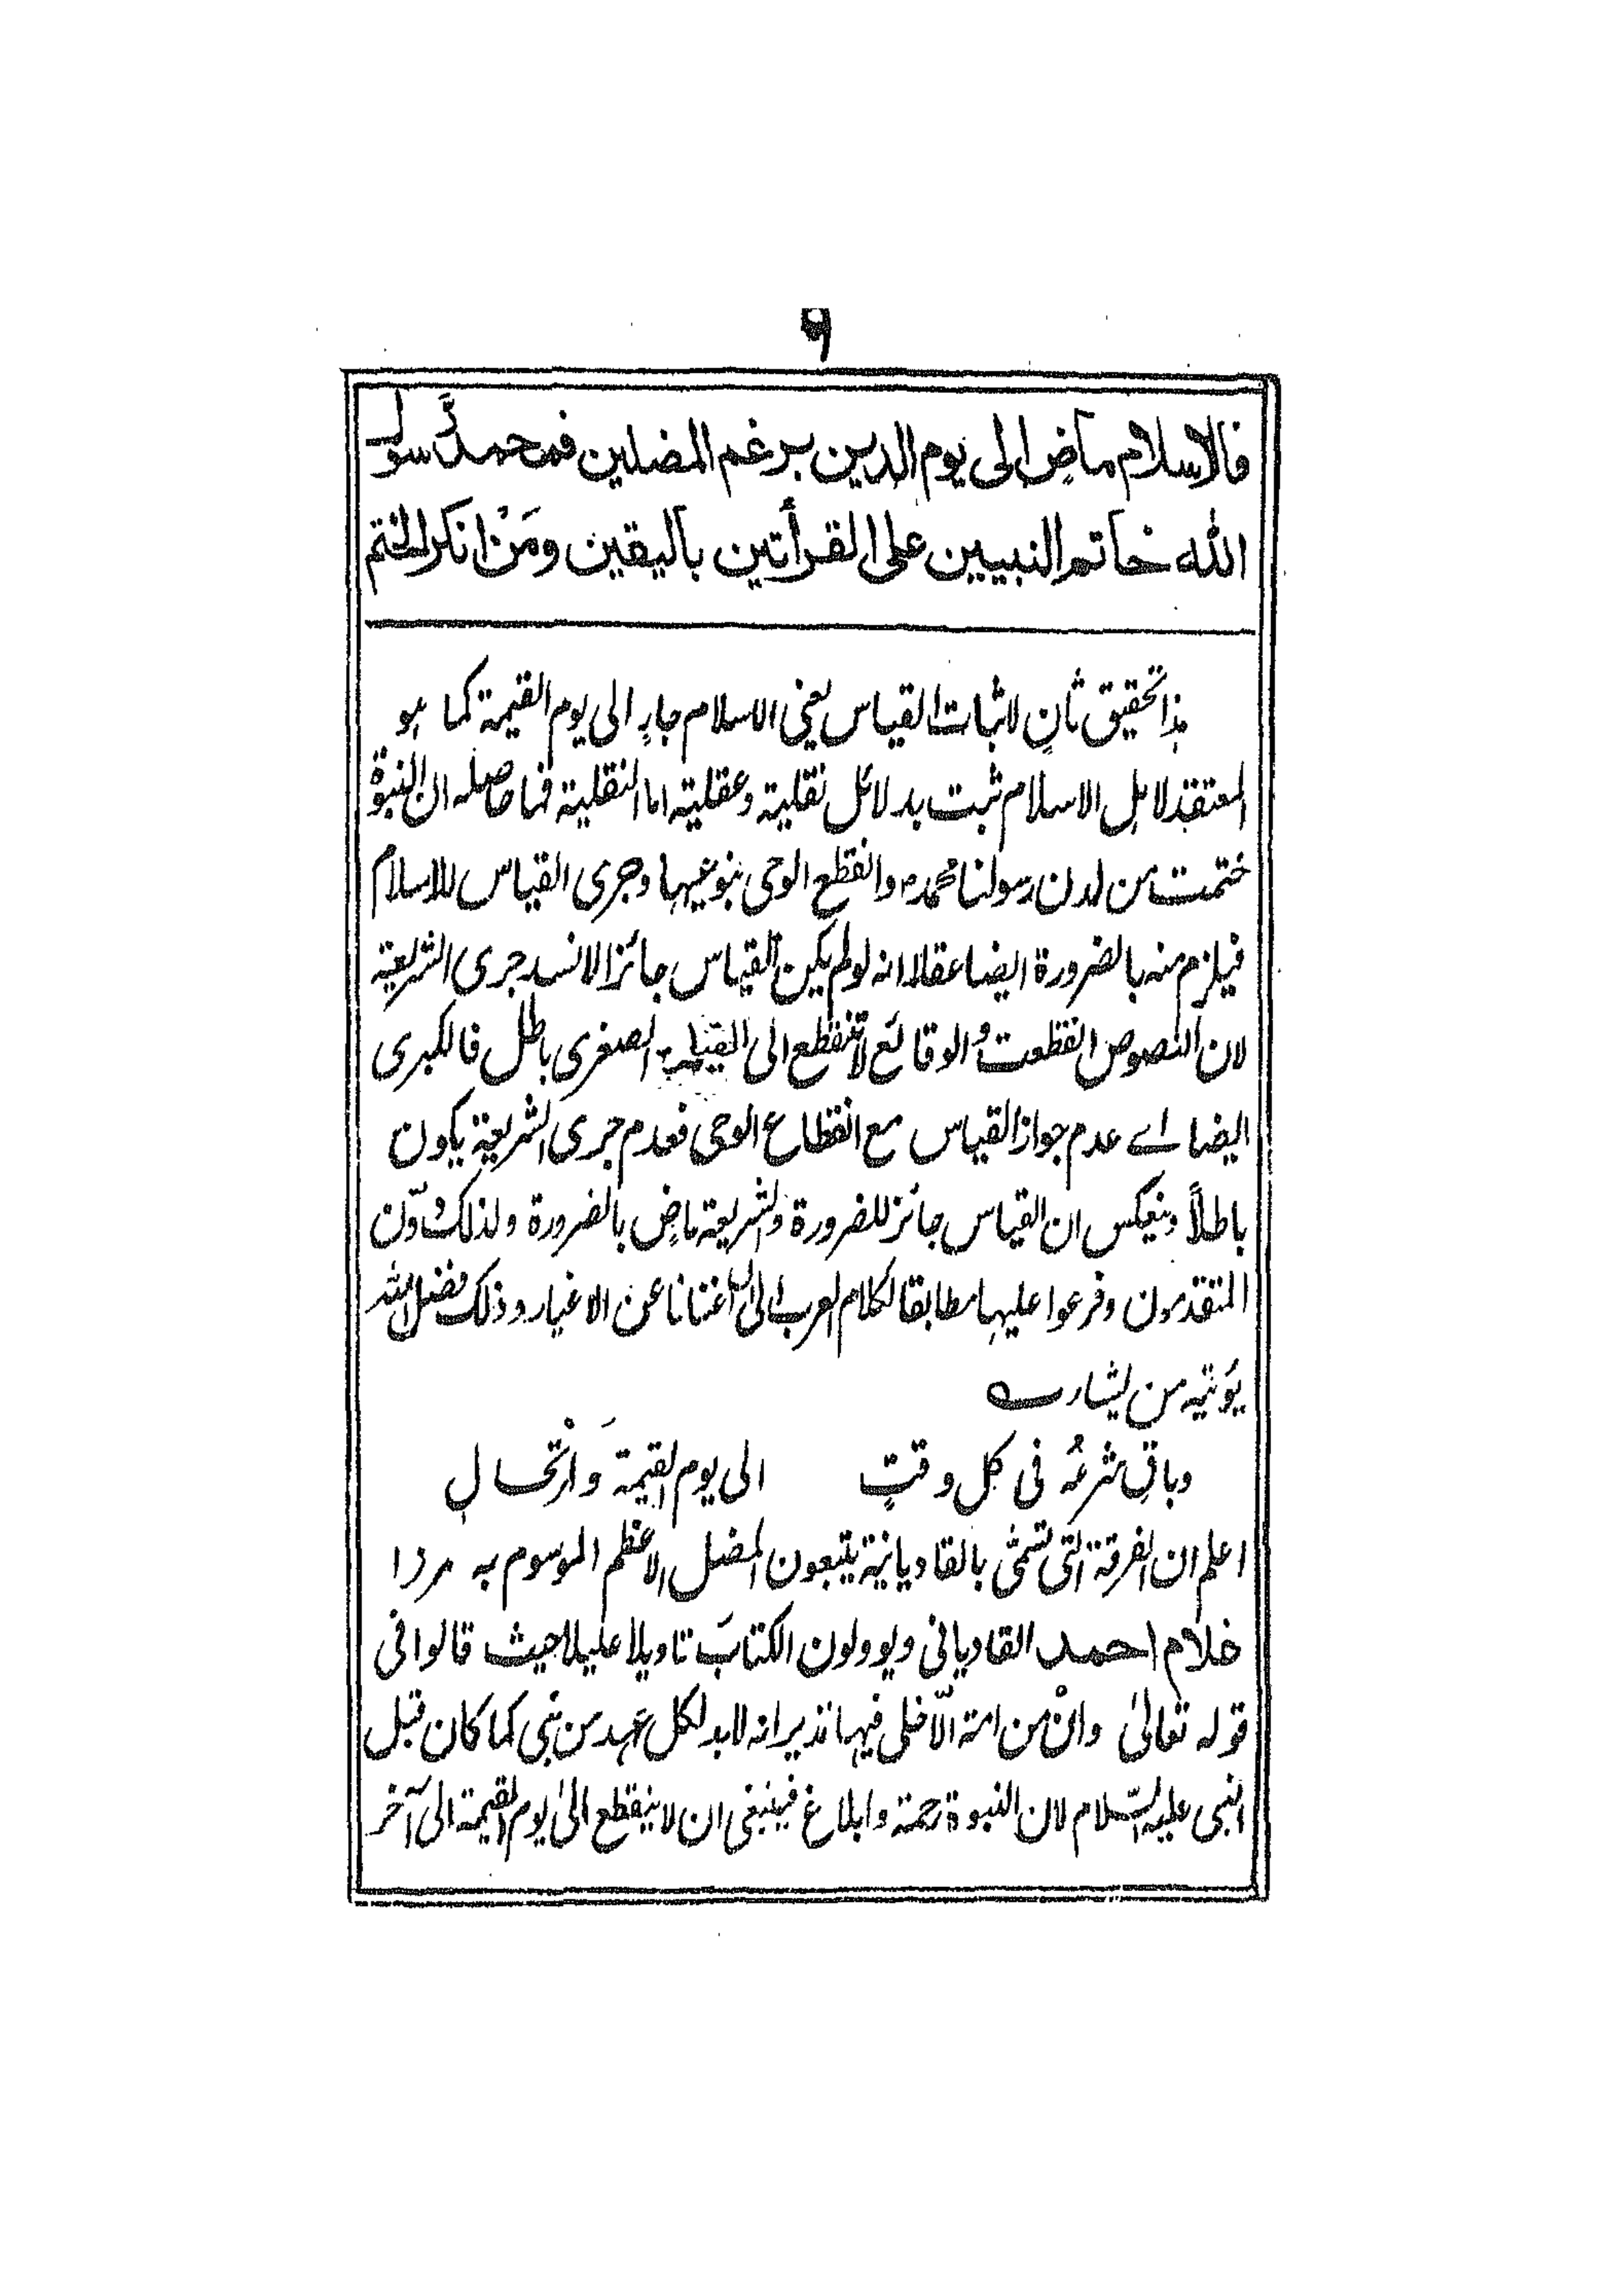 ۹
فالاسلام ماضٍ الى يوم الدين برغم المضلين فمحمد رَّسول
الله خاتم النبيين على القرأتين باليقين ومَنْ انكر الختم
هذا تحقيق ثانٍ لاثبات القياس يعنى الاسلام جارٍ الى يوم القيمة كما هو
المعتقد لاهل الاسلام ثبت بدلائل نقلية وعقلية اما النقلية فما حاصله ان النبوة
ختمت من لدن رسولنا محمدؐ وانقطع الوحى بنوعيها وجرى القياس للاسلام
فيلزم منه بالضرورة ايضا عقلا انه لو لم يكن القياس جائزا لانسد جرى الشريعة
لان النصوص انقطعت والوقائع لا تنقطع الى الصغرى باطل فالكبرى
ايضا اے عدم جواز القياس مع انقطاع الوحى فعدم جرى الشريعة يكون
باطلاً وينعكس ان القياس جائز للضرورة والشريعة ماضٍ بالضرورة ولذلك دوّن
المتقدمون وفرعوا عليها مطابقا لكلام العرب الى اغنانا عن الاغيار وذلك فضل الله
يؤتيه من يشاء ـه
وباقٍ شرعُه فى كل وقتٍ الى يوم القيمة وَارْتحالِ
اعلم ان الفرقة التى تسمّى بالقاديانية يتبعون المضل الاعظم الموسوم به مرزا
غلام احمد القاديانى ويوولون الكتابَ تاويلا عليلا حيث قالوا فى
قوله تعالىٰ وانْ من امة الّا خلى فيها نذير انه لابد لكل عهد من نبى كما كان قبل
النبى عليه السّلام لان النبوة رحمة وابلاغ فينبغى ان لا ينقطع الىٰ يوم القيمة الى آخر